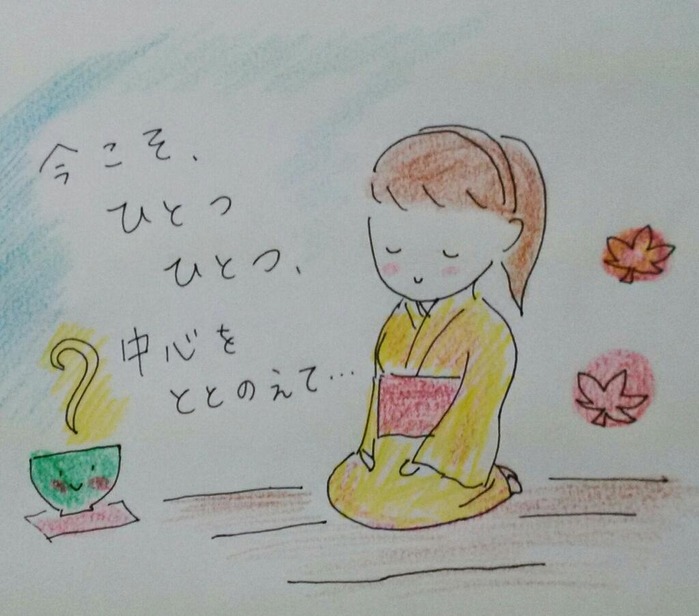 今こそ、
ひとつ
ひとつ、
中心を
ととのえて…